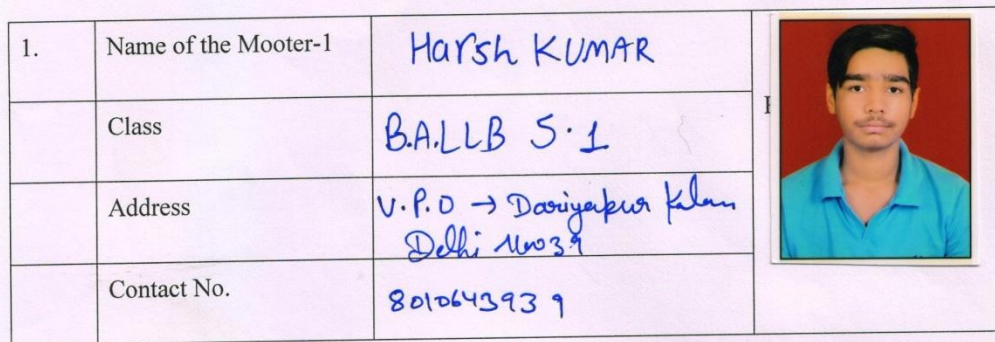 1. Name of the Mooter-1 Harsh KUMAR
Class B.A.LLB 5.1
Address V.P.O → Dariyapur Kalan
Delhi 110039
Contact No. 8010643939